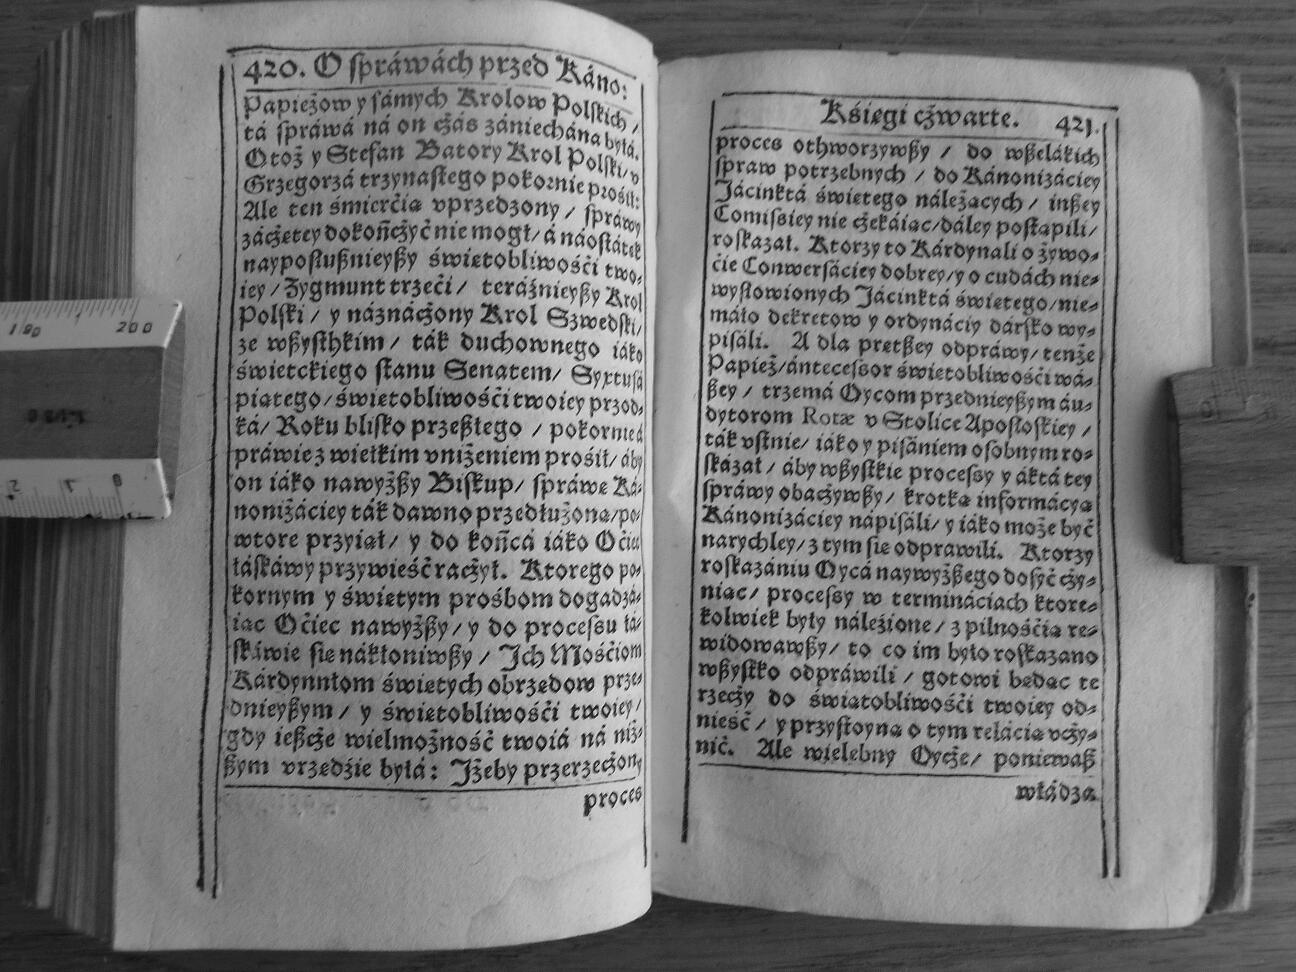 420. O spráwách przed Káno:
Papieżow y sámych Krolow Polskich /
tá spráwá ná on cżás zániechána byłá.
Otoż y Stefan Batory Krol Polski / v
Grzegorzá trzynastego pokornie prośił:
Ale ten śmierćią vprzedzony / spráwy
zácżętey dokońcżyć nie mogł / á náostátek
nayposłußnieyßy świętobliwośći two-
iey / Zygmunt trzeći / teráźnieyßy Krol
Polski / y náznácżony Krol Szwedski /
ze wßysthkim / ták duchownego iáko
świetckiego stanu Senatem / Syxtusá
piątego / świętobliwośći twoiey przod-
ká / Roku blisko przeßłego / pokornie á
práwie z wielkim vniżeniem prośił / áby
on iáko nawyżßy Biskup / spráwę Ká-
nonizáciey ták dawno przedłużoną / po-
wtore przyiął / y do końcá iáko Oćiec
łáskáwy przywieść racżył. Ktorego po-
kornym y świętym prośbom dogadzá-
iąc Oćiec nawyżßy / y do procesßu łá-
skáwie się nákłoniwßy / Ich Mośćiom
Kárdynnłom świętych obrzędow prze-
dnieyßym / y świętobliwośći twoiey /
gdy ießcże wielmożność twoiá ná niż-
ßym vrzędźie byłá: Iżeby przerzecżony
proces
Kśięgi cżwarte. 421.
proces othworzywßy / do wßelákich
spraw potrzebnych / do Kánonizáciey
Jácinktá świętego náleżących / inßey
Comißiey nie cżekáiąc / dáley postąpili /
roskazał. Ktorzy to Kárdynali o żywo-
ćie Conwersáciey dobrey / y o cudách nie-
wysłowionych Jácinktá świętego / nie-
máło dekretow y ordynáciy dársko wy-
pisáli. A dla prętßey odpráwy / tenże
Papież / ántecesßor świętobliwośći wá-
ßey / trzemá Oycom przednieyßym áu-
dytorom Rotæ v Stolice Apostolskiey /
ták vstnie / iáko y pisániem osobnym ro-
skázał / áby wßystkie procesßy y áktá tey
spráwy obacżywßy / krotką informácyą
Kánonizáciey nápisáli / y iáko może być
narychley / z tym się odprawili. Ktorzy
roskazániu Oycá naywyżßego dosyć cży-
niąc / procesßy w termináciach ktore-
kolwiek były náleźione / z pilnośćią re-
widowawßy / to co im było roskazano
wßystko odpráwili / gotowi będąc te
rzecży do świątobliwośći twoiey od-
nieść / y przystoyną o tym relácią vcży-
nić. Ale wielebny Oycże / ponieważ
władza